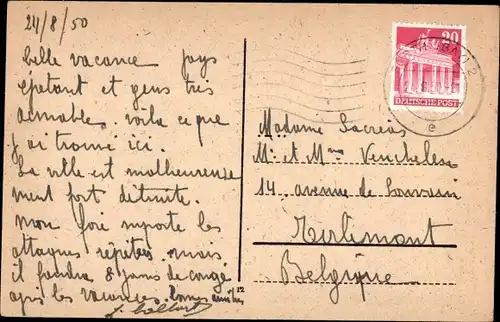 24/8/50
belle vacance pays
épatant et gens très
aimables. voila ce que
j'ai trouvé ici.
La ville est malheureuse
ment fort détruite.
mon foie supporte les
attaques répétées mais
il faudra 8 jours de congé
après les vacances. bonnes amitiés
20
DEUTSCHE POST
e
Madame
Mr et Mme Venchelen
14 avenue de Louvain
Tirlemont
Belgique